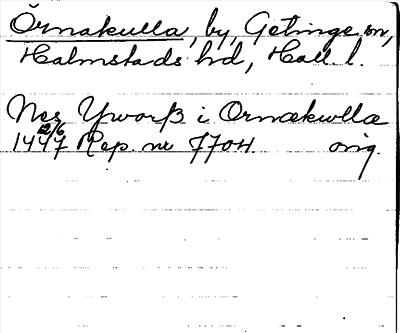 Örnakulla, by, Getinge sn,
Halmstads hd, Hall. l.
Nes Yworß i Ornækwllæ
1447 2/6 Rep. nr 7704 orig.